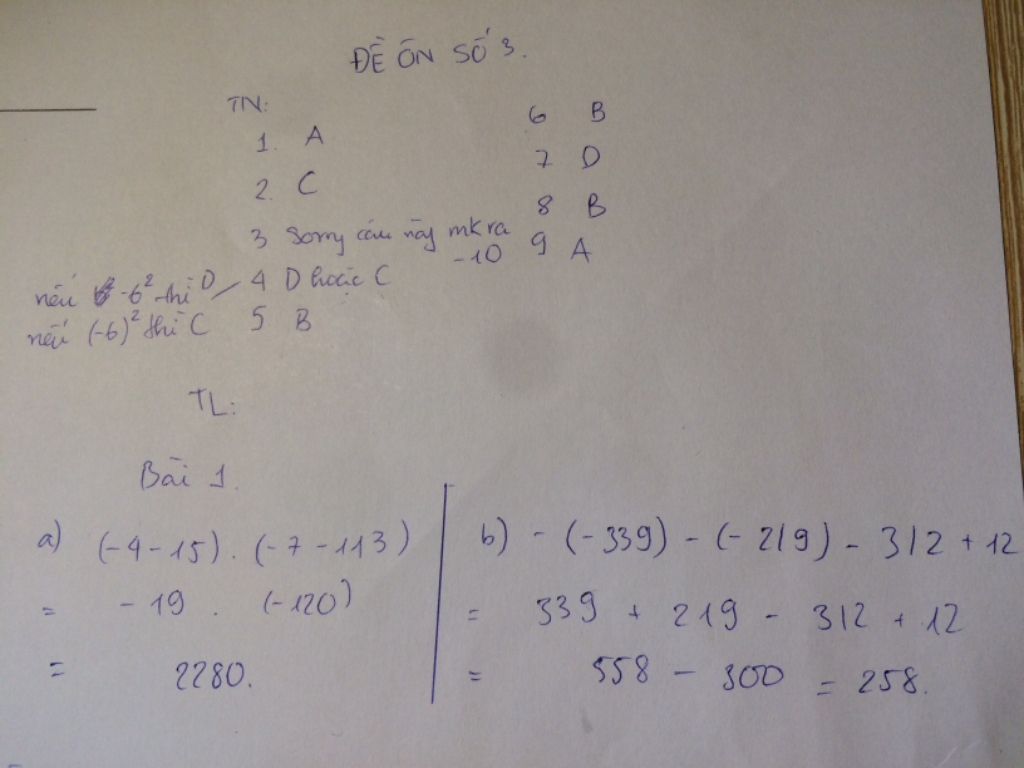 ĐỀ ÔN SỐ 3.
TN:
1. A
2. C
3 Sorry câu này mk ra -10
4 D hoặc C
nếu -6² thì D
nếu (-6)² thì C
5 B
6 B
7 D
8 B
9 A
TL:
Bài 1.
a) (-4-15) . (-7-113)
= -19 . (-120)
= 2280.
b) - (-339) - (-219) - 312 + 12
= 339 + 219 - 312 + 12
= 558 - 300 = 258.